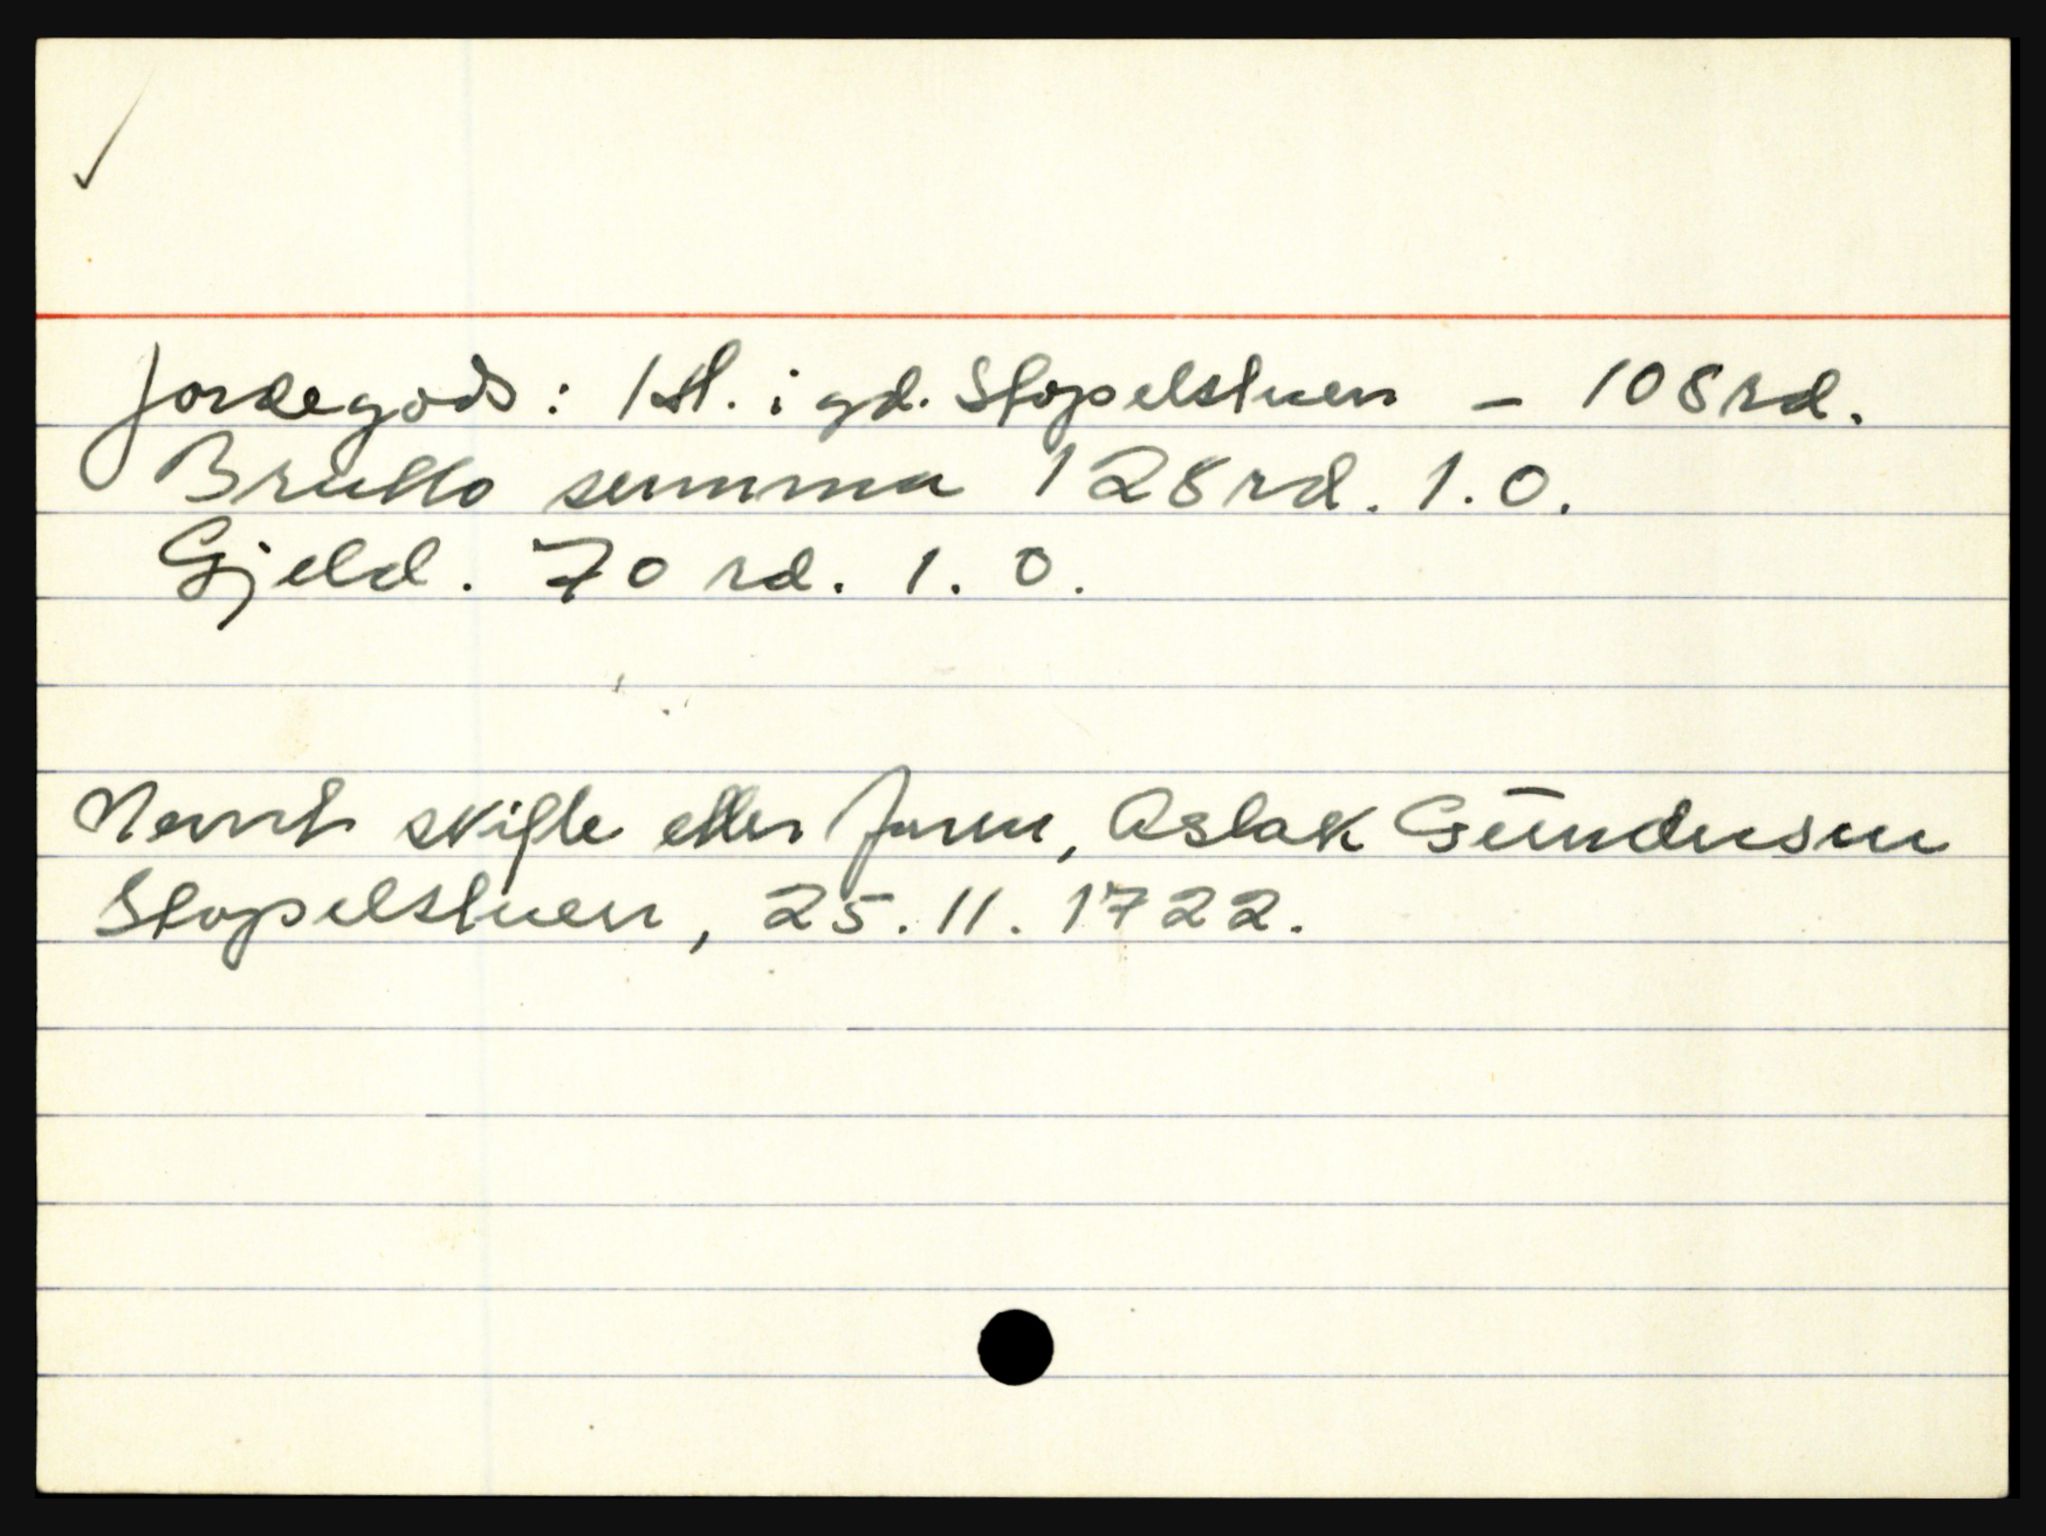 Jordegods: 1 kl. i gd. Stopelstuen - 108 rd.
Brutto summa 128 rd. 1.0.
Gjeld. 70 rd. 1. 0.
Nevnt skifte etter faren, Aslak Gundersen
Stopelstuen, 25.11.1722.